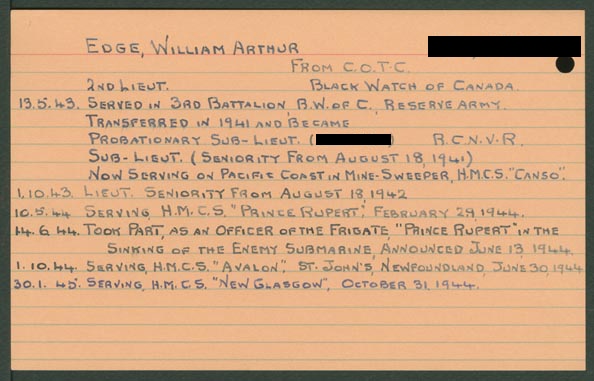 EDGE, WILLIAM ARTHUR
FROM C.O.T.C.
2ND LIEUT. BLACK WATCH OF CANADA.
13.5.43. SERVED IN 3RD BATTALION, B.W. OF C., RESERVE ARMY.
TRANSFERRED IN 1941 AND BECAME
PROBATIONARY SUB-LIEUT. ( ) R.C.N.V.R.
SUB-LIEUT. (SENIORITY FROM AUGUST 18, 1941)
NOW SERVING ON PACIFIC COAST IN MINE-SWEEPER, H.M.C.S. "CANSO".
1.10.43. LIEUT. SENIORITY FROM AUGUST 18, 1942
10.5.44. SERVING, H.M.C.S. "PRINCE RUPERT", FEBRUARY 29, 1944.
14.6.44. TOOK PART, AS AN OFFICER OF THE FRIGATE, "PRINCE RUPERT" IN THE
SINKING OF THE ENEMY SUBMARINE, ANNOUNCED JUNE 13, 1944.
1.10.44. SERVING, H.M.C.S. "AVALON", ST. JOHN'S, NEWFOUNDLAND, JUNE 30, 1944
30.1.45. SERVING, H.M.C.S. "NEW GLASGOW", OCTOBER 31, 1944.